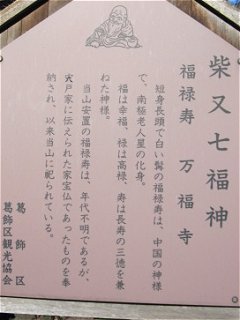 柴又七福神
福禄寿 万福寺
短身長頭で白い髯の福禄寿は、中国の神様
で、南極老人星の化身。
福は幸福、禄は高禄、寿は長寿の三徳を兼
ねた神様。
当山安置の福禄寿は、年代不明であるが、
宍戸家に伝えられた家宝仏であったものを奉
納され、以来当山に祀られている。
葛飾区
葛飾区観光協会